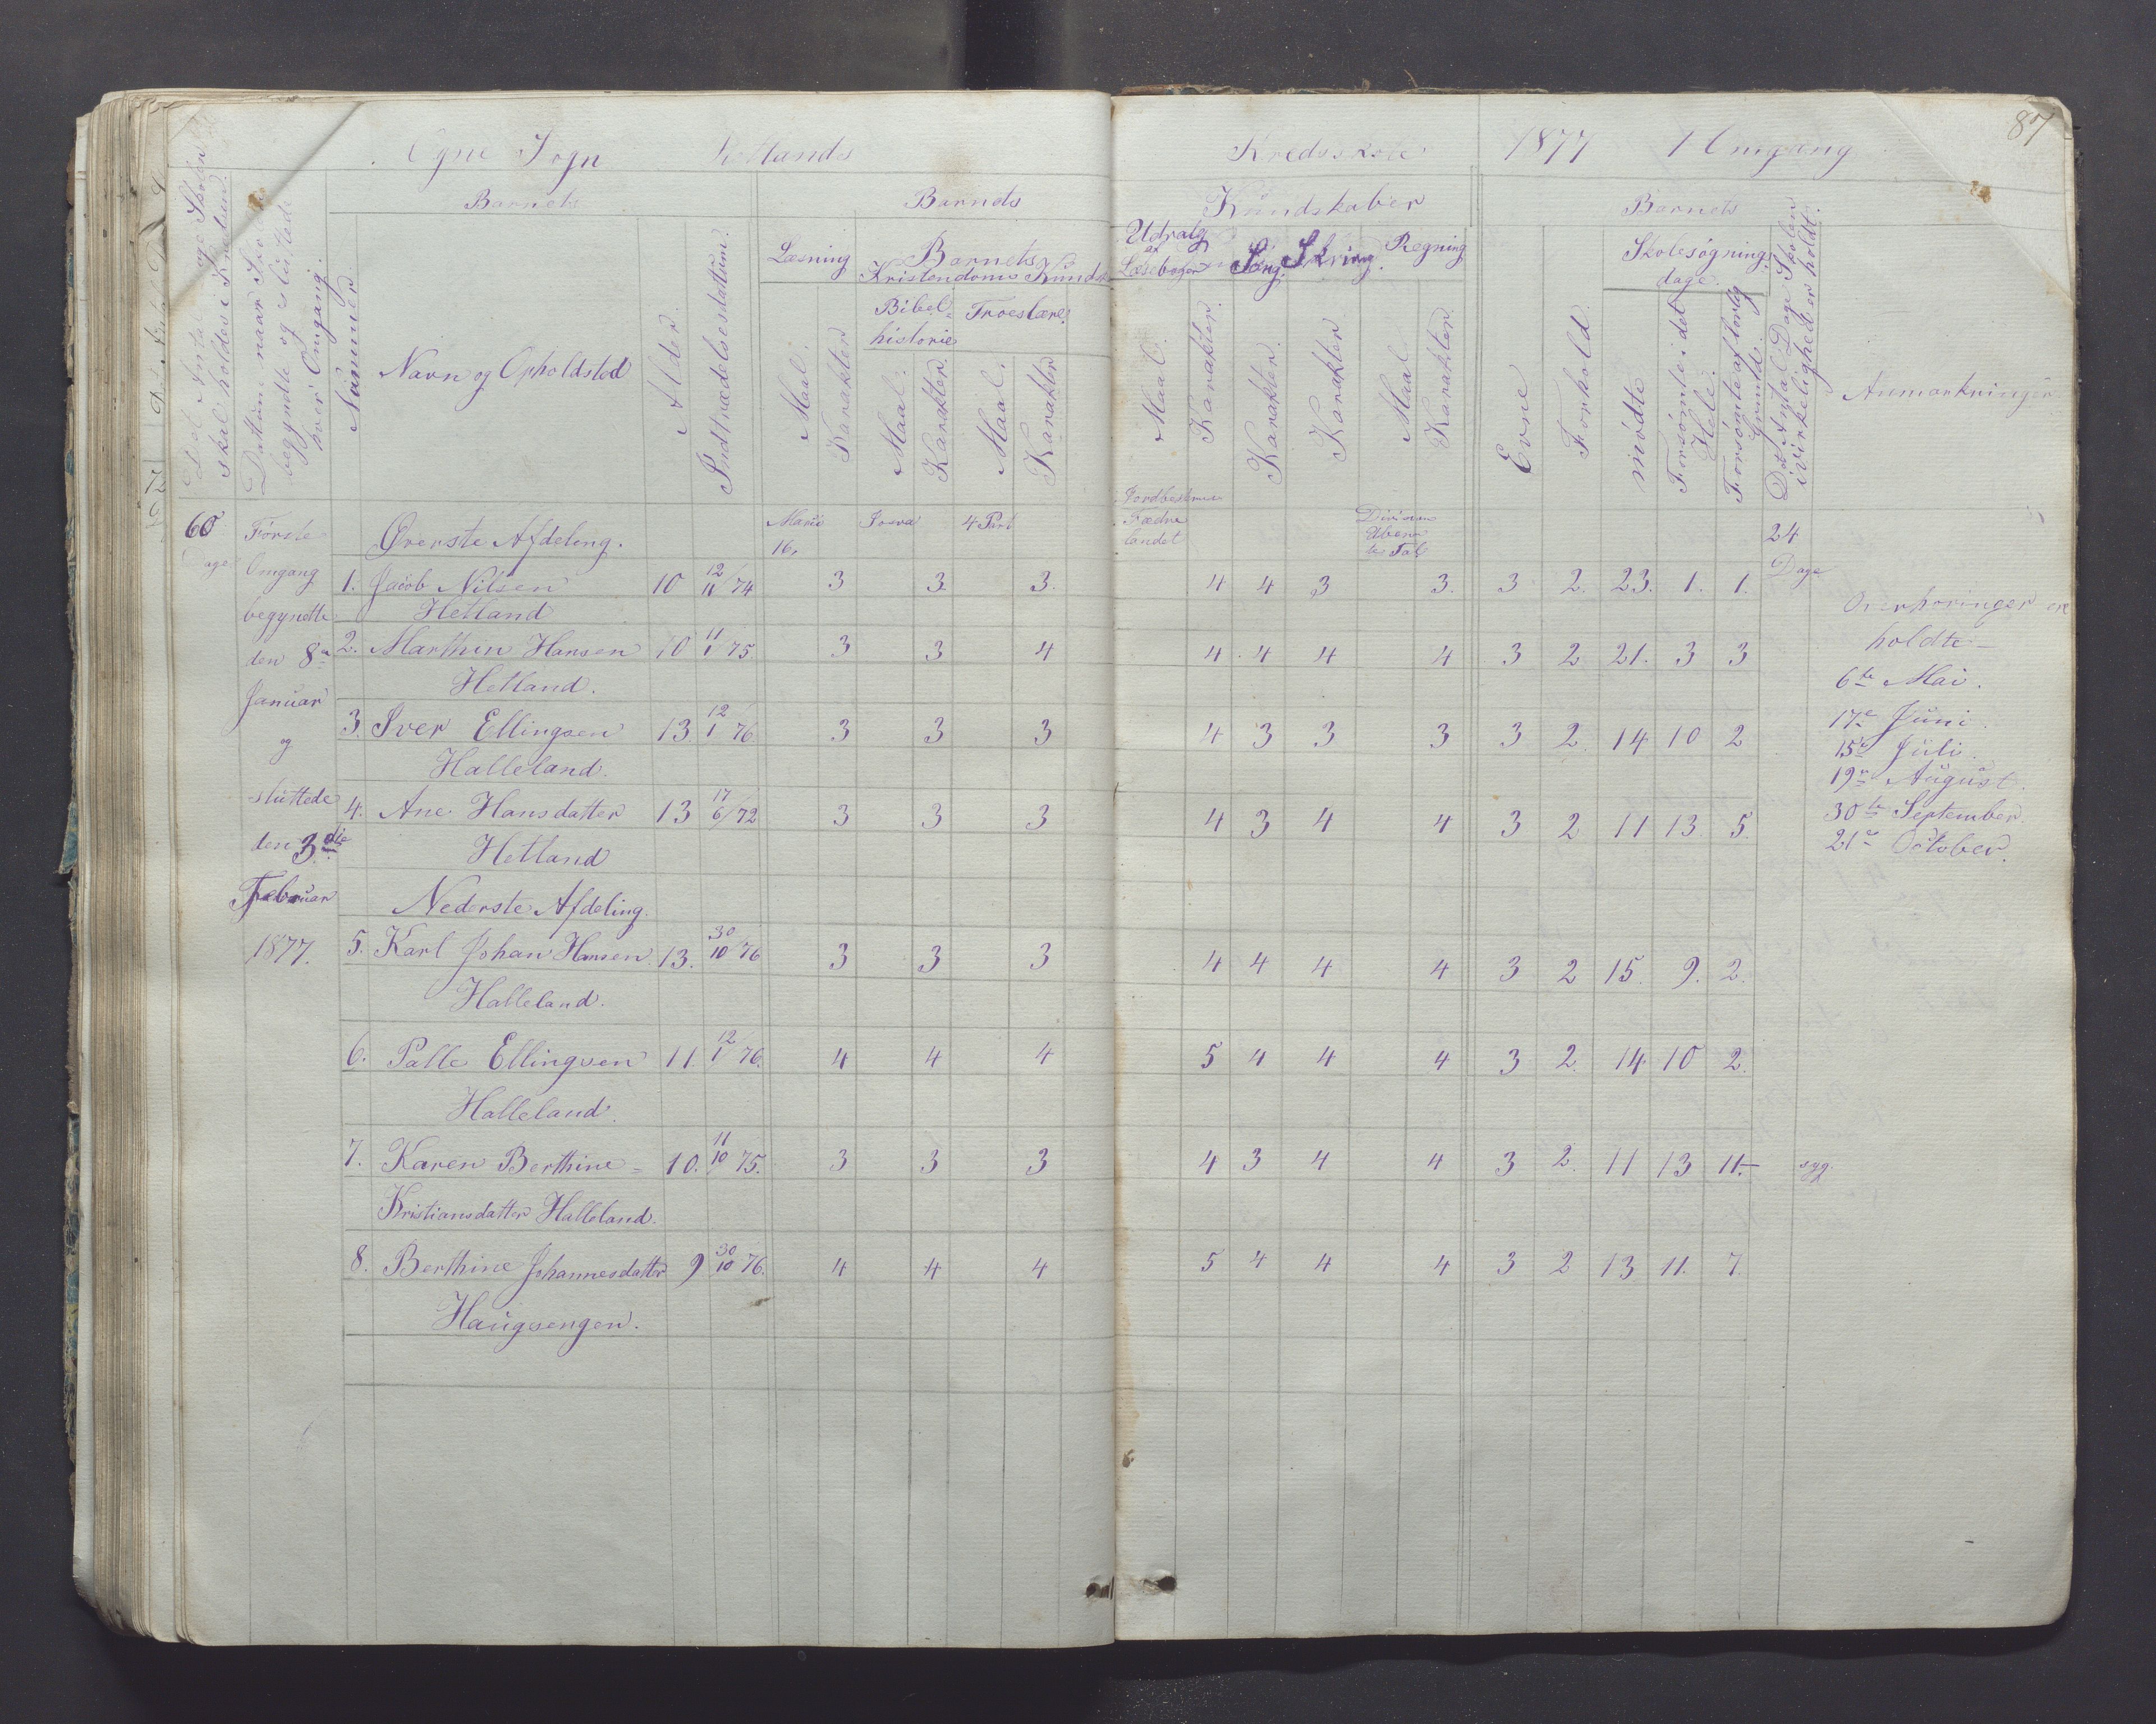 Ogne Sogn Kredsskole 1877 1 Omgang 87
Barnets Barnets Kundskaber Barnets
skal holdes i Kredsen.
Datum naar Skolen
begyndte og sluttede
hver Omgang.
Nummer
Navn og Opholdsted
Alder.
Indtrædelsesdatum.
Læsning
Maal.
Karakter
Barnets
Kristendoms Kundsk
Bibel-
historie
Maal.
Karakter.
Troeslære.
Maal.
Karakter
Udvalg
af
Læsebogen
Maal.
Karakter.
Sang.
Karakter.
Skriving.
Karakter
Regning
Maal
Karakter
Evne
Forhold.
Skolesøgning
dage.
mødte
Forsømte i det
Hele.
Forsømte af lovlig
Grund.
Det Antal Dage Skolen
i virkeligheden er holdt.
Anmærkninger
60 Første Øverste Afdeling. 16. Josva 4 Part Fædre landet Division 24
Omgang 1. Jacob Nilsen 10 12/11 74 3 3 3. 4 4 3 3. 3 2. 23. 1. 1. Dage
Hetland
begyndte Overhøringer ere
den 8de 2. Marthin Hansen 10 11/1 75. 3 3 4 4 4 4 4 3 2 21. 3 3 holdte
Hetland.
6te Mai.
Januar 3. Iver Ellingsen 13. 12/1 76 3 3 3 4 3 3 3 3 2. 14 10 2 17e Juni.
og Halleland.
15e Juli.
19e August.
sluttede 4. Ane Hansdatter 13 17/6 72 3 3 3 4 3 4 4 3 2 11 13 5. 30te September.
den 3die Hetland
21e October.
Februar Nederste Afdeling.
1877. 5. Karl Johan Hansen 13. 30/10 76 3 3 3 4 4 4 4 3 2 15. 9. 2.
Halleland.
6. Palle Ellingsen 11. 12/1 76. 4 4 4 5 4 4 4 3 2. 14 10 2.
Halleland.
7. Karen Berthine 10. 11/10 75. 3 3 3 4 3 4 4 3 2. 11 13 11.- syg.
Kristiansdatter Halleland.
8. Berthine Johannesdatter 9 30/10 76. 4 4 4 5 4 4 4 3 2 13 11. 7.
Haugsengen.